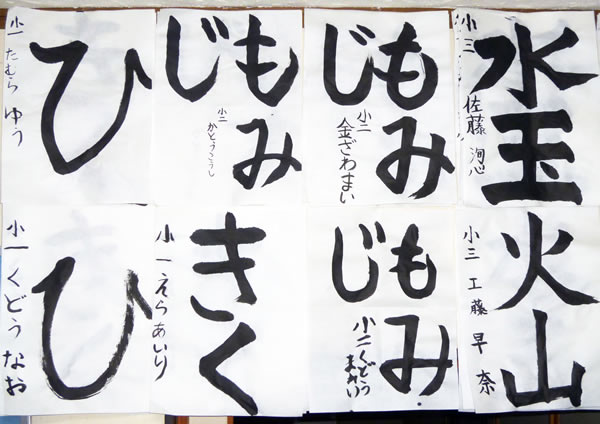 水玉
小三 佐藤
もみじ
小二 金ざわまい
もみじ
小二 かとうこうし
ひ
小一 たむら ゆう
火山
小三 工藤 早奈
もみじ
小二 くどう
きく
小一 えらあいり
ひ
小一 くどう なお